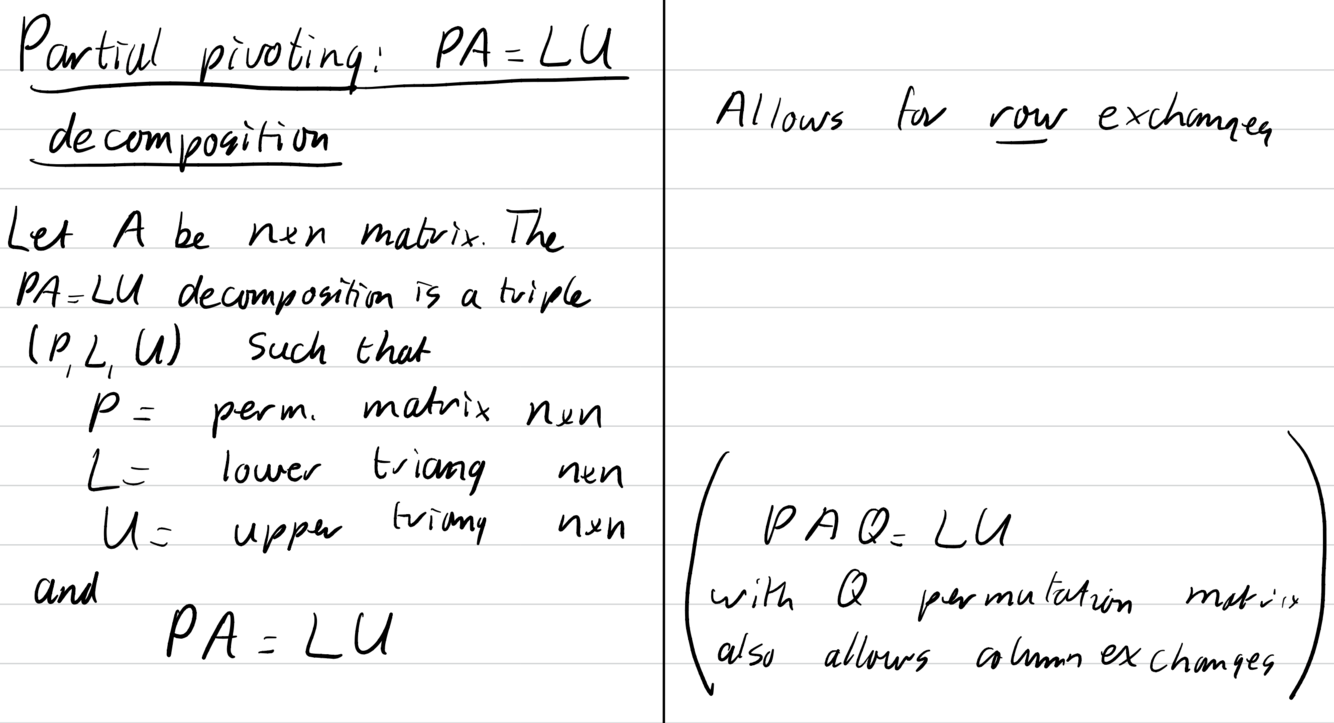 Partial pivoting: PA = LU
decomposition
Let A be n×n matrix. The
PA=LU decomposition is a triple
(P, L, U) such that
P = perm. matrix n×n
L = lower triang n×n
U = upper triang n×n
and
PA = LU
Allows for row exchanges
PAQ = LU
with Q permutation matrix
also allows column exchanges